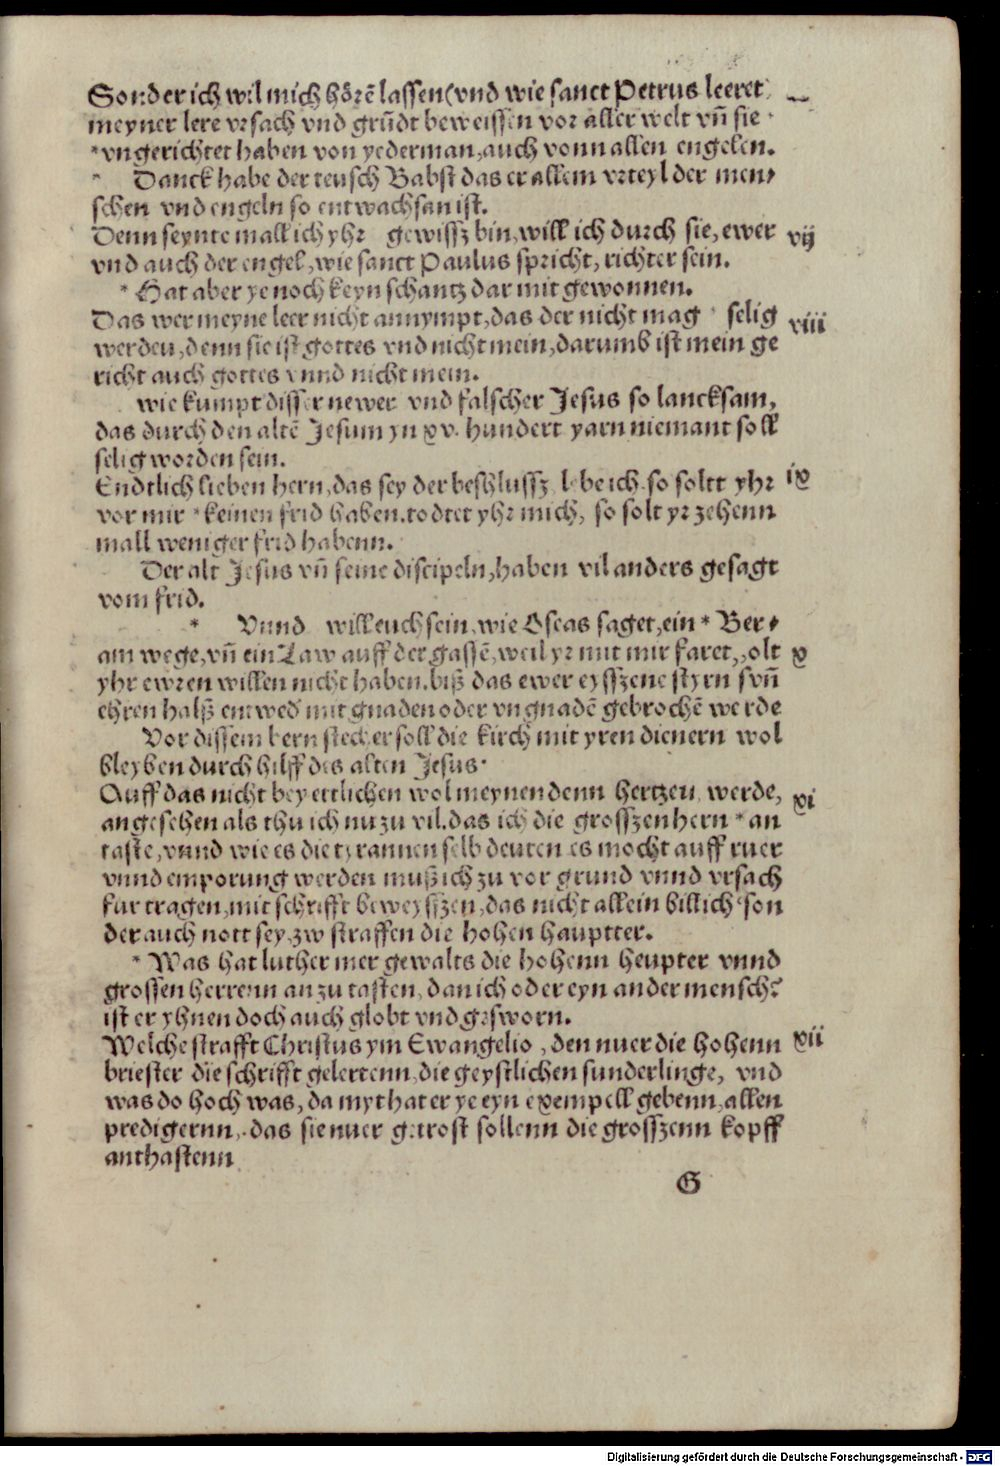 Sonder ich wil mich hörē lassen (vnd wie sanct Petrus leeret
meyner lere vrsach vnd grūdt beweissen vor aller welt vn̄ sie
*vngerichtet haben von yederman, auch vonn allen engelen.
* Danck habe der teusch Babst das er allem vrteyl der men⸗
schen vnd engeln so entwachsan ist.
Denn seynte mall ich yhr gewissz bin, will ich durch sie, ewer vij
vnd auch der engel, wie sanct Paulus spricht, richter sein.
* Hat aber ye noch keyn schantz dar mit gewonnen.
Das wer meyne leer nicht annympt, das der nicht mag selig viii
werden, denn sie ist gottes vnd nicht mein, darumb ist mein ge
richt auch gottes vnnd nicht mein.
wie kumpt disser newer vnd falscher Jesus so lancksam,
das durch den altē Jesum yn xv. hundert yarn niemant soll
selig worden sein.
Endtlich lieben hern, das sey der beshlussz, lebe ich so soltt yhr ix
vor mir *keinen frid haben. todtet yhr mich, so solt yr zehenn
mall weniger frid habenn.
Der alt Jesus vn̄ seine discipeln, haben vil anders gesagt
vom frid.
* Vnnd will euch sein, wie Oseas saget, ein * Ber⸗
am wege, vn̄ ein Law auff der gassē, weil yr mit mir faret, olt x
yhr ewren willen nicht haben. biß das ewer eysszene styrn vn̄
ehren halß entwed mit gnaden oder vngnadē gebrochē werde
Vor dissem bern stecher soll die kirch mit yren dienern wol
bleyben durch hilff des alten Jesus.
Auff das nicht bey ettlichen wol meynen denn hertzen werde, xi
angesehen als thu ich nu zu vil. das ich die grosszen hern *an
taste, vnnd wie es die tyrannen selb deuten es mocht auff ruer
vnnd emporung werden muß ich zu vor grund vnnd vrsach
fur tragen, mit schrifft beweysszen, das nicht allein billich son
der auch nott sey, zw straffen die hohen hauptter.
* Was hat luther mer gewalts die hohenn heupter vnnd
grossen herrenn an zu tasten, dan ich oder eyn ander mensch?
ist er yhnen doch auch globt vnd gesworn.
Welche strafft Christus ym Ewangelio, den nuer die hohenn xii
briester die schrifft gelertenn, die geystlichen sunderlinge, vnd
was do hoch was, da myt hat er ye eyn exempell gebenn, allen
predigernn, das sie nuer getrost sollenn die grosszenn kopff
anthastenn
G
Digitalisierung gefördert durch die Deutsche Forschungsgemeinschaft - DFG